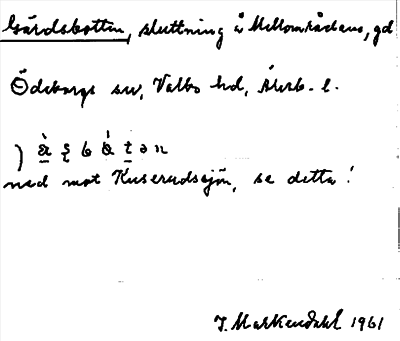 Gärdsbotten, sluttning å Mellområdane, gd
Ödeborgs sn, Valbo hd, Älvsb. l.
nad mot Kuserudsjön, se detta!
J. Markendahl 1961